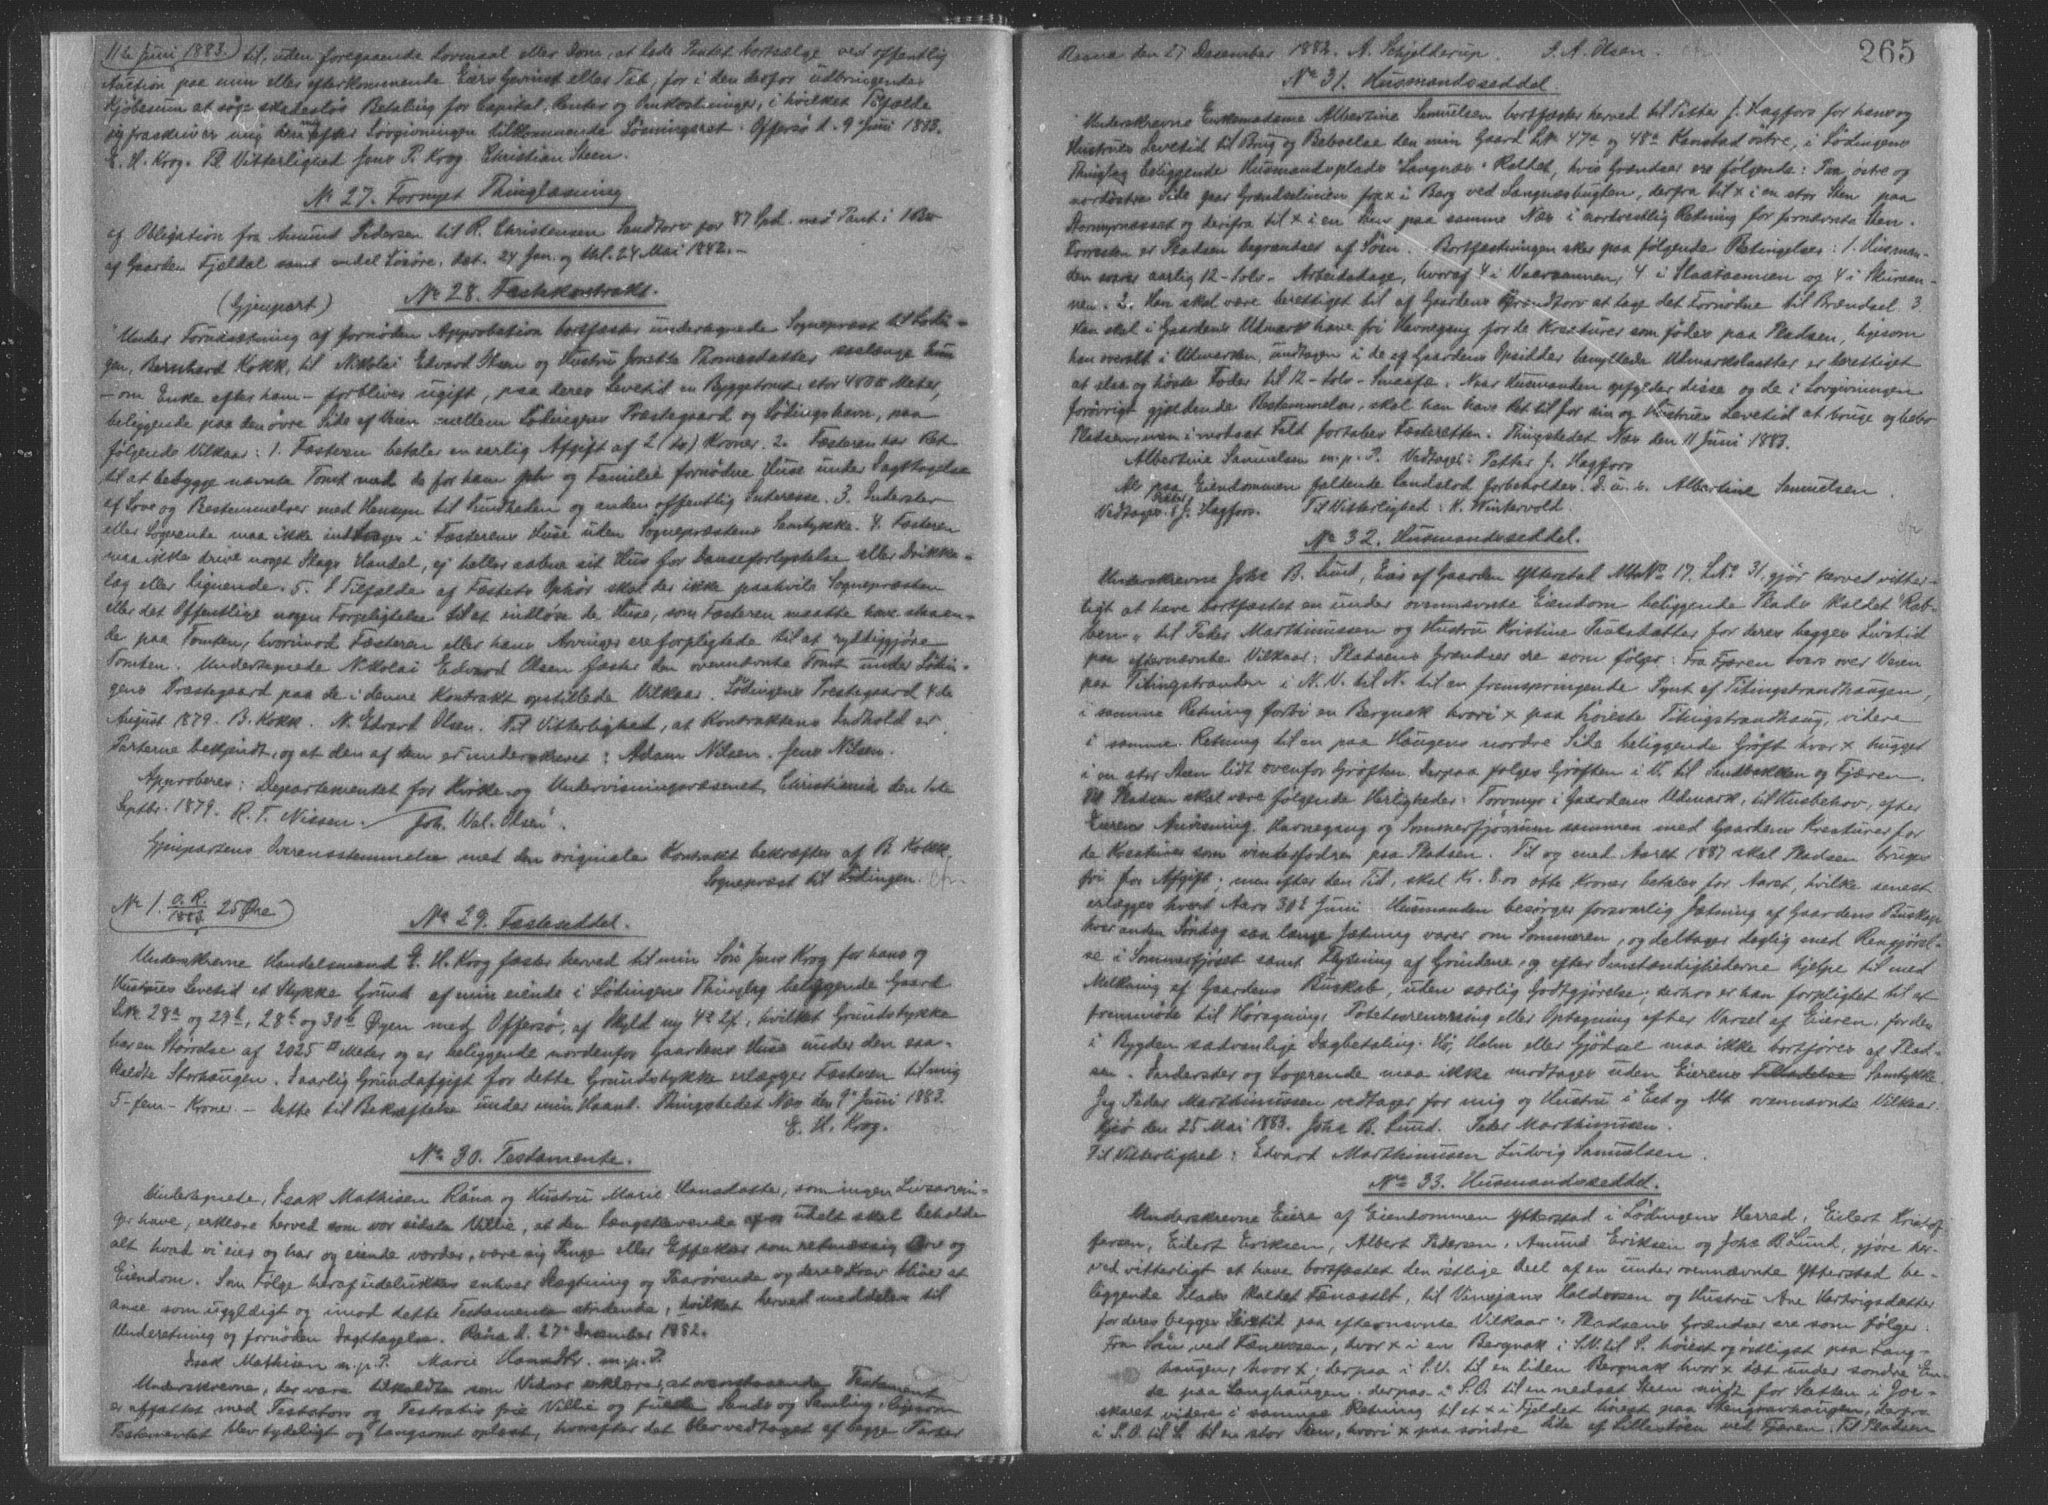 11te Juni 1883.) til, uden foregaaende Lovmaal eller Dom, at lade Pantet bortsælge ved offentlig
Auction paa min eller efterkommende Eiers Gevinst eller Tab, for i den derfor udbringende
Kjøbesum at søge skadesløs Betaling for Capital, Renter og Omkostninger, i hvilket Tilfælde
jeg fraskriver mig den mig efter Lovgivningen tilkommende Løsningsret. Offersø d. 9 Juni 1883.
E. H. Krog. Til Vitterlighed Jens P. Krog. Christian Steen.
No 27. Fornyet Thinglæsning
af Obligation fra Amund Pedersen til R. Christensen Sandtorv for 87 Spd. med Pant i 1 Bn
af Gaarden Fjeldal samt endel Løsøre, dat. 24 Jan. og thl. 24 Mai 1842. -
(Gjenpart) No 28. Festekontrakt.
Under Forudsætning af fornøden Approbation bortfæster undertegnede Sogneprest til Lødin-
gen, Bernhard Kokk, til Nikolai Edvard Olsen og Hustru Jonetta Thomasdatter saalænge hun
- om Enke efter ham - forblives ugift, paa deres Levetid en Byggetomt, stor 480 □ Meter,
beliggende paa den øvre Side af Veien mellem Lødingens Præstegaard og Lødingshavn, paa
følgende Vilkaar: 1. Fæsteren betaler en aarlig Afgift af 2 (to) Kroner. 2. Fæsteren har Ret
til at bebygge nævnte Tomt med de for ham selv og Familie fornødne Huse under Iagttagelse
af Love og Bestemmelser med Hensyn til Sundheden og anden offentlig Interesse. 3. Inderster
eller Logerende maa ikke indtages i Fæsterens Huse uden Sogneprestens Samtykke. 4. Fæsteren
maa ikke drive noget Slags Handel, ej heller aabne sit Hus for Danseforlystelse eller Drikke-
lag eller lignende. 5. I Tilfælde af Fæstets Ophør skal der ikke paahvile Sognepresten
eller det Offentlige nogen Forpligtelse til at indløse de Huse, som Fæsteren maatte have staaen-
de paa Tomten, hvorimod Fæsteren eller hans Arvinger ere forpligtede til at ryddiggjøre
Tomten. Undertegnede Nikolai Edvard Olsen fæster den ovennævnte Tomt under Lødin-
gens Præstegaard paa de i denne Kontrakt opstillede Vilkaar. Lødingens Prestegaard 4de
August 1879. B. Kokk. N. Edvard Olsen. Til Vitterlighed, at Kontraktens Indhold er
Parterne bekjendt, og at den af dem er underskrevet: Adam Nilsen. Jens Nilsen.
Approberes: Departementet for Kirke- og Undervisningsvæsenet, Christiania den 1ste
Septbr. 1879. R. T. Nissen. / Joh. Val. Olsen.
Gjenpartens Overensstemmelse med den originale Kontrakt bekræftes af B. Kokk,
Sogneprest til Lødingen.
No 1. O. R. / 1883 25 Øre
No 29. Festeseddel.
Underskrevne Handelsmand E. H. Krog fæster herved til min Søn Jens Krog for hans og
Hustrues Levetid et Stykke Grund af min eiende i Lødingens Thinglag beliggende Gaard
L.No 28a og 29b, 28b og 30b Øyen med Offersø, af Skyld ny 4d 2s, hvilket Grundstykke
har en Størrelse af 2025 □ Meter og er beliggende nordenfor Gaardens Huse under den saa-
kaldte Storhaugen. I aarlig Grundafgift for dette Grundstykke erlægger Fæsteren til mig
5 - fem - Kroner. - Dette til Bekræftelse under min Haand. Thingstedet Næs den 9de Juni 1883.
E. H. Krog.
No 30. Testamente.
Undertegnede, Isak Mathisen Råna og Hustru Marie Hansdatter, som ingen Livsarvin-
ger have, erklære herved som vor sidste Villie, at den længstlevende af os udelt skal beholde
alt hvad vi eier og har og eiende vorder, være sig Penge eller Effekter som retmæssig Arv og
Eiendom. Som Følge heraf udelukkes enhver Slægtning og Paarørende og deres Krav bliver at
anse som ugyldigt og imod dette Testamente stridende, hvilket herved meddeles til
Underretning og fornøden Iagttagelse. Råna d. 27de December 1882.
Isak Mathisen m.p.P. Marie Hansdtr. m.p.P.
Underskrevne, der vare tilkaldte som Vidner erklærer, at ovenstaaende Testament
er affattet med Testators og Testratrix frie Villie og fulde Sands og Samling, ligesom
Testamentet blev tydeligt og langsomt oplæst, hvorefter det blev vedtaget af begge Parter
265
Raana den 27 Desember 1882. A. Schjelderup. J. A. Olsen.
No 31. Husmandsseddel
Underskrevne Enkemadame Albertine Samuelsen bortfæster herved til Petter J. Hagfors for hans og
Hustrues Levetid til Brug og Beboelse den min Gaard L.No 47a og 48a Kanstad østre, i Lødingens
Thinglag beliggende Husmandsplads "Langnes" kaldet, hvis Grændser ere følgende: Paa østre og
nordøstre Side gaar Grændselinien fra x i Berg ved Langnæsbugten, derfra til x i en stor Sten paa
Stormyrnæsset og derifra til x i en Sten paa samme Næs i nordvestlig Retning for fornævnte Sten.
Forresten er Pladsen begrændset af Søen. Bortfæstningen sker paa følgende Betingelser: 1. Husman-
den svarer aarlig 12 - tolv - Arbeidsdage, hvoraf 4 i Vaaraannen, 4 i Slaataannen og 4 i Skuraan-
nen. 2. Han skal være berettiget til af Gaardens Brændtorv at tage det Fornødne til Brændsel. 3.
Han skal i Gaardens Udmark have fri Havnegang for de Kreaturer som fødes paa Pladsen, ligesom
han overalt i Udmarken, undtagen i de af Gaardens Opsidder benyttede Udmarkslaatter er berettiget
at slaa og høste Foder til 12 - tolv - Smaafæ. Naar Husmanden opfylder disse og de i Lovgivningen
forøvrigt gjældende Bestemmelser, skal han have Ret til for sin og Hustrues Levetid at bruge og bebo
Pladsen, men i modsat Fald fortabes Fæsteretten. Thingstedet Næs den 11 Juni 1883.
Albertine Samuelsen m.p.P. Vedtages: Petter J. Hagfors
Al paa Eiendommen faldende Landslod forbeholdes. D. u. s. Albertine Samuelsen.
Vedtages: Petter J. Hagfors. Til Vitterlighed: K. Wintervold.
No 32. Husmandsseddel.
Underskrevne Johs B. Lund, Eier af Gaarden Ytterstad Mtr No 17. L.No 31, gjør herved vitter-
ligt at have bortfæstet en under ovennævnte Eiendom beliggende Plads kaldet "Rab-
ben" til Peder Marthinussen og Hustru Kristine Paulsdatter for deres begges Livstid
paa efternævnte Vilkaar: Pladsens Grændser ere som følger: Fra Fjæren tvers over Veien
paa Titingstranden i N.V. til N. til en fremspringende Pynt af Titingstrandhaugen,
i samme Retning forbi en Bergnak hvori x paa høieste Titingstrandhaug, videre
i samme Retning til en paa Haugens nordre Side beliggende Grøft hvor x hugget
i en stor Steen lidt ovenfor Grøften. Derpaa følges Grøften i V. til Sandbakken og Fjæren.
Til Pladsen skal være følgende Herligheder: Torvmyr i Gaardens Udmark, til Husbehov, efter
Eierens Anvisning. Havnegang og Sommerfjøsrum sammen med Gaardens Kreaturer for
de Kreaturer som vinterfodres paa Pladsen. Til og med Aaret 1887 skal Pladsen bruges
fri for Afgift; men efter den Tid, skal Kr. 8.00 otte Kroner betales for Aaret, hvilke senest
erlægges hvert Aars 30te Juni. Husmanden besørger forsvarlig Jætning af Gaardens Buskap
hver anden Søndag saa længe Jætning varer om Sommeren, og deltager daglig med Rengjørel-
se i Sommerfjøset samt Flytning af Grindene, og efter Omstændighederne hjelpe til med
Melkning af Gaardens Buskab, uden særlig Godtgjørelse; derhos er han forpligtet til at
fremmøde til Høragning, Potetesrensning eller Optagning efter Varsel af Eieren, for den
i Bygden sædvanlige Dagbetaling. Hø, Halm eller Gjødsel maa ikke bortføres af Plad-
sen. Inderster og Logerende maa ikke modtages uden Eierens Tilladelse Samtykke.
Jeg Peder Marthinussen vedtager for mig og Hustru i Eet og Alt ovennævnte Vilkaar.
Kjø den 25 Mai 1883. Johs B. Lund. Peder Marthinussen.
Til Vitterlighed: Edvard Marthinussen Ludvig Samuelsen.
No 33. Husmandsseddel.
Underskrevne Eiere af Eiendommen Ytterstad i Lødingens Herred, Eilert Kristof-
fersen, Eilert Eriksen, Albert Pedersen, Amund Eriksen og Johs B Lund, gjøre her-
ved vitterligt at have bortfæstet den østlige Deel af en under ovennævnte Ytterstad be-
liggende Plads kaldet Fænasdlt, til Vinsjans Haldorsen og Hustru Ane Hartvigsdatter
for deres begges Livstid paa efternævnte Vilkaar: Pladsens Grændser ere som følger:
Fra Søen ved Fænesson, hvor x i en Bergnak i S.V. til S. høiest og østligst paa Lang-
haugen, hvor x, derpaa i S.V. til en liden Bergnak hvor x tæt under søndre En-
de paa Langhaugen, derpaa i S.O. til en nedsat Steen midt for Sletten i Jor-
skaret videre i samme Retning til et x i Fjeldet høiest paa Stengravhaugen, derfra
i S.O. til S. til en stor Sten, hvori x paa søndre Side af Lillestøen ved Fjæren. Til Pladsen